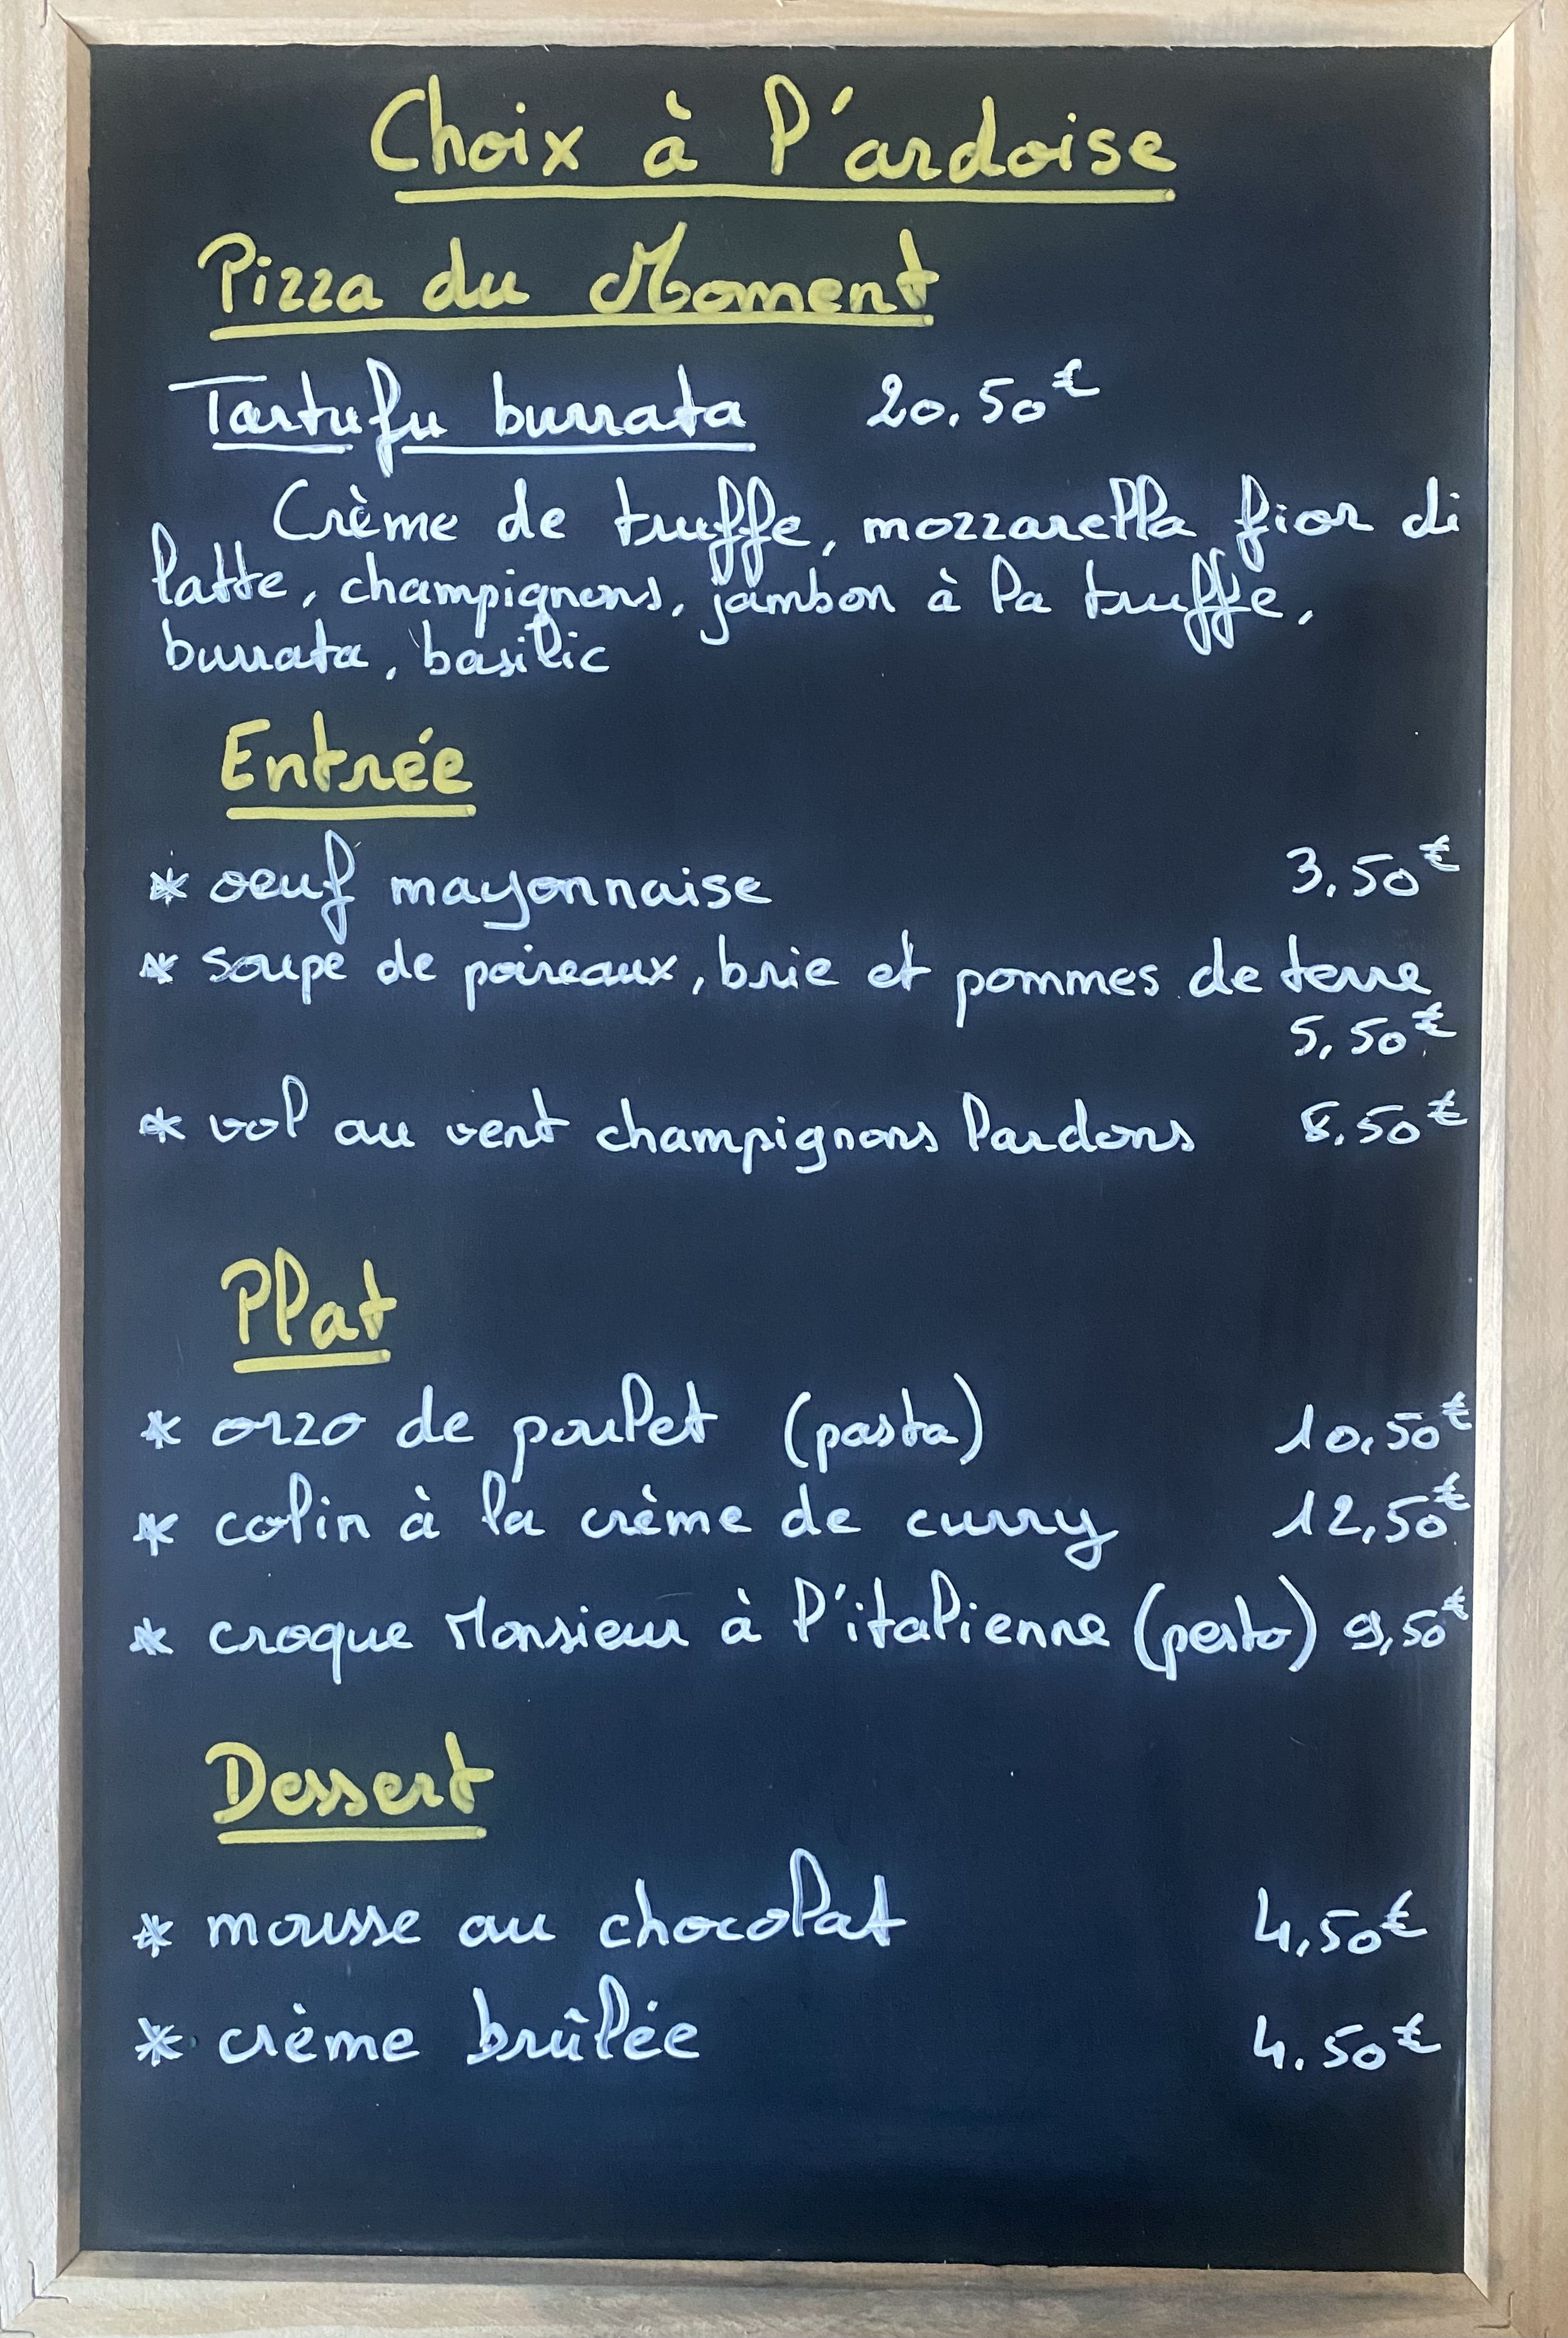 Choix à l'ardoise
Pizza du Moment
Tartufu burrata 20.50€
Crème de truffe, mozzarella fior di
latte, champignons, jambon à la truffe,
burrata, basilic
Entrée
* oeuf mayonnaise 3.50€
* soupe de poireaux, brie et pommes de terre
5,50€
* vol au vent champignons lardons 8.50€
Plat
* orzo de poulet (pasta) 10,50€
* colin à la crème de curry 12,50€
* croque Monsieur à l'italienne (pesto) 9,50€
Dessert
* mousse au chocolat 4,50€
* crème brûlée 4.50€